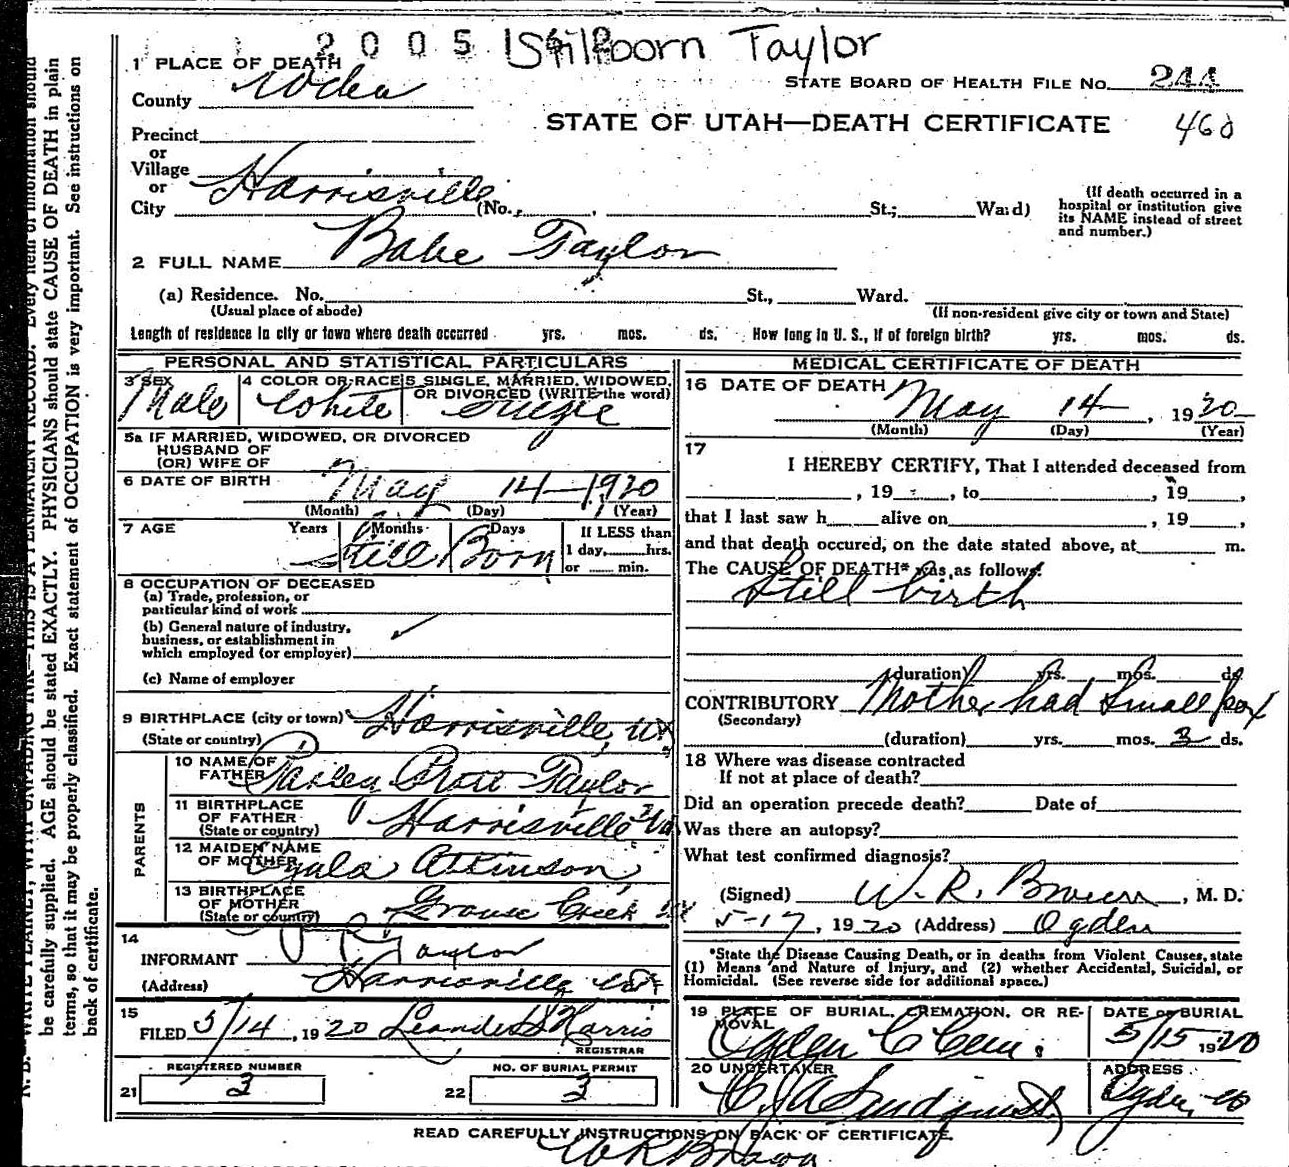 2005 Stillborn Taylor
1 PLACE OF DEATH
STATE BOARD OF HEALTH FILE No. 244
County
STATE OF UTAH—DEATH CERTIFICATE 460
Precinct
or
Village
or Harrisville
City (No., St.; Ward)
(If death occurred in a
hospital or institution give
its NAME instead of street
and number.)
2 FULL NAME Babe Taylor
(a) Residence. No. St., Ward.
(Usual place of abode) (If non-resident give city or town and State)
Length of residence in city or town where death occurred yrs. mos. ds. How long in U. S., if of foreign birth? yrs. mos. ds.
PERSONAL AND STATISTICAL PARTICULARS
3 SEX Male
4 COLOR OR RACE White
5 SINGLE, MARRIED, WIDOWED,
OR DIVORCED (WRITE the word)
Single
5a IF MARRIED, WIDOWED, OR DIVORCED
HUSBAND OF
(OR) WIFE OF
6 DATE OF BIRTH May 14—1920
(Month) (Day) (Year)
7 AGE Years Months Days If LESS than
1 day, hrs.
or min.
Still Born
8 OCCUPATION OF DECEASED
(a) Trade, profession, or
particular kind of work
(b) General nature of industry,
business, or establishment in
which employed (or employer)
(c) Name of employer
9 BIRTHPLACE (city or town) Harrisville, Ut
(State or country)
PARENTS
10 NAME OF
FATHER Parley Pratt Taylor
11 BIRTHPLACE
OF FATHER Harrisville
(State or country)
12 MAIDEN NAME
OF MOTHER Atkinson
13 BIRTHPLACE
OF MOTHER Grouse Creek
(State or country)
14
INFORMANT Taylor
(Address) Harrisville
15
FILED 5/14, 1920 Harris
REGISTRAR
REGISTERED NUMBER
21 3
NO. OF BURIAL PERMIT
22 3
MEDICAL CERTIFICATE OF DEATH
16 DATE OF DEATH May 14—, 1920
(Month) (Day) (Year)
17
I HEREBY CERTIFY, That I attended deceased from
, 19 , to , 19 ,
that I last saw h alive on , 19 ,
and that death occured, on the date stated above, at m.
The CAUSE OF DEATH* was as follows:
Still birth
(duration) yrs. mos. ds.
CONTRIBUTORY Mother had Small pox
(Secondary)
(duration) yrs. mos. 3 ds.
18 Where was disease contracted
If not at place of death?
Did an operation precede death? Date of
Was there an autopsy?
What test confirmed diagnosis?
(Signed) W. R. Brown, M. D.
5-17, 1920 (Address) Ogden
*State the Disease Causing Death, or in deaths from Violent Causes, state
(1) Means and Nature of Injury, and (2) whether Accidental, Suicidal, or
Homicidal. (See reverse side for additional space.)
19 PLACE OF BURIAL, CREMATION, OR RE-
MOVAL
Ogden C Cem.
DATE OF BURIAL
5/15 1920
20 UNDERTAKER
ADDRESS
READ CAREFULLY INSTRUCTIONS ON BACK OF CERTIFICATE.
W R Brown
N. B.—WRITE PLAINLY, WITH UNFADING INK—THIS IS A PERMANENT RECORD. Every item of information should
be carefully supplied. AGE should be stated EXACTLY. PHYSICIANS should state CAUSE OF DEATH in plain
terms, so that it may be properly classified. Exact statement of OCCUPATION is very important. See instructions on
back of certificate.